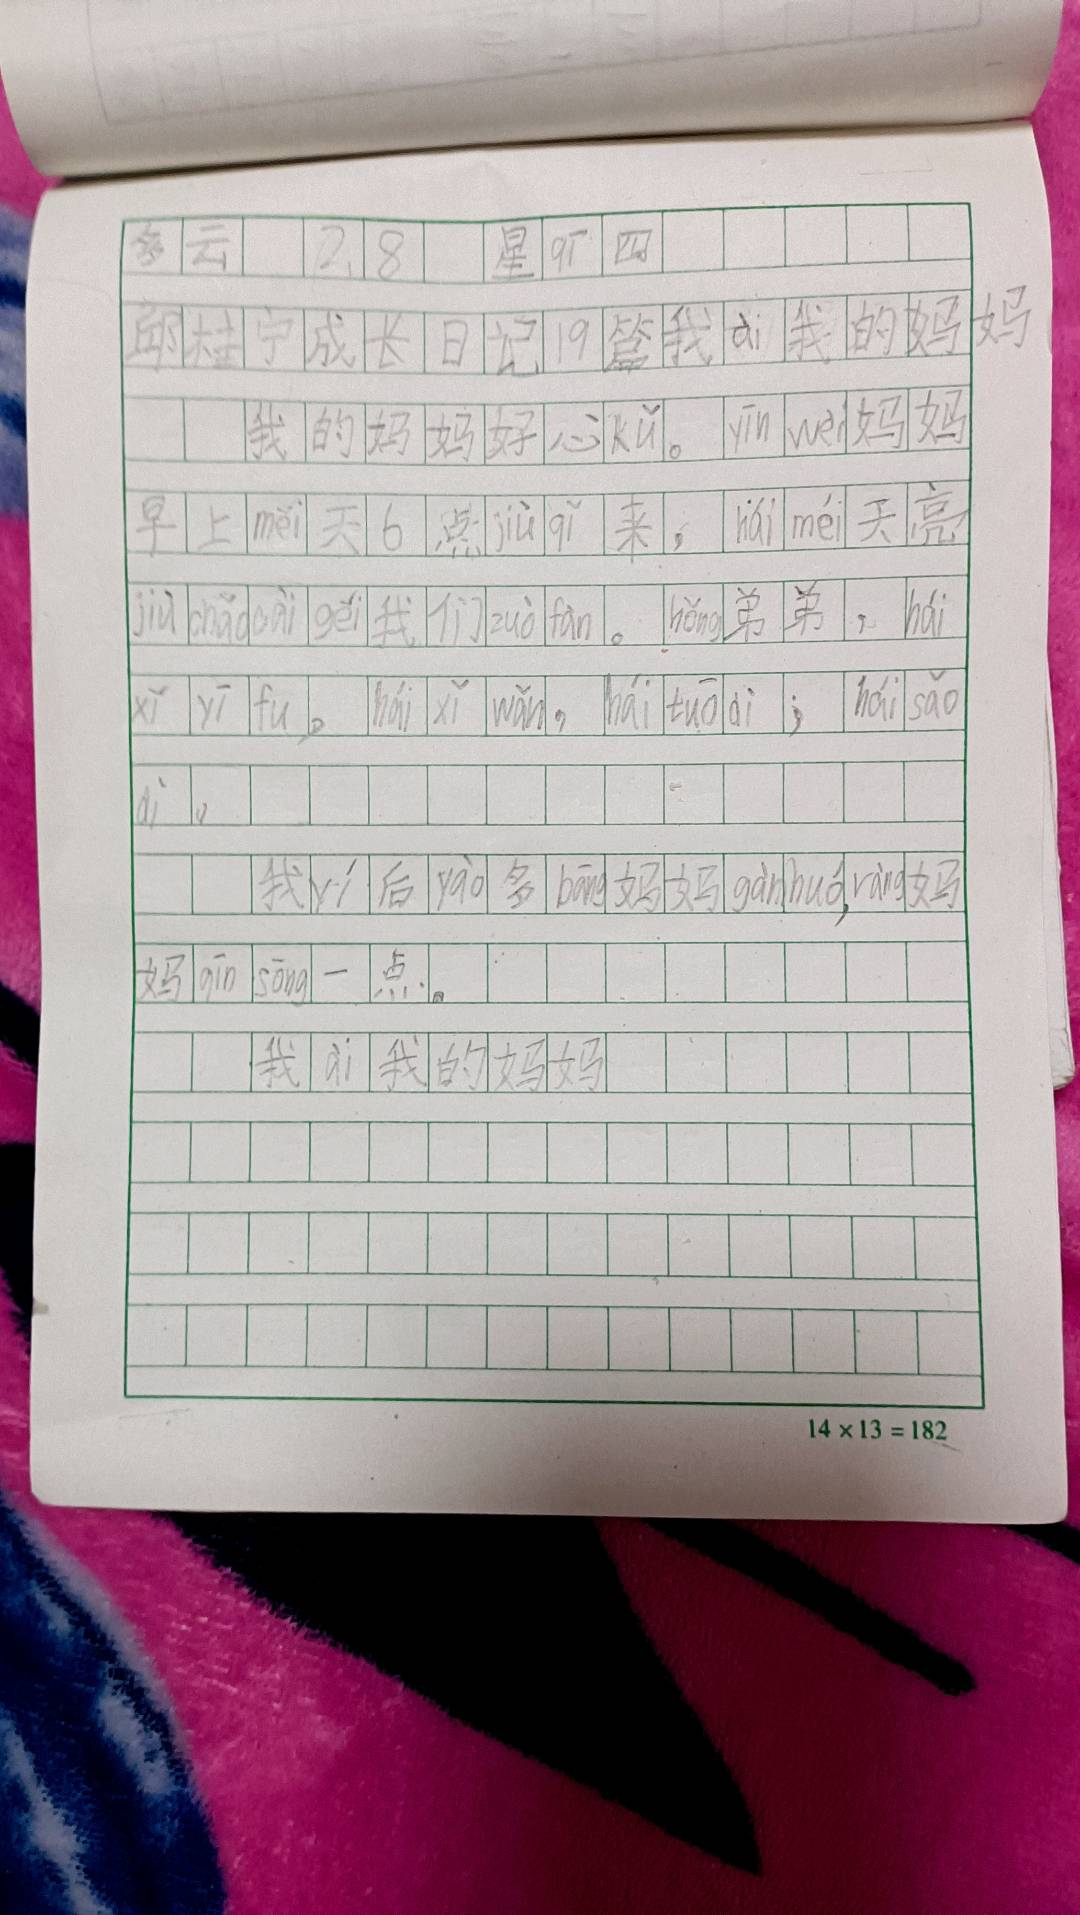 多云 2.8 星qī四
邱桂宁成长日记19篇我ài我的妈妈
我的妈妈好心kǔ。yīn wèi妈妈
早上měi天6点jiù qǐ来，hái méi天亮
jiù chǎo cài gěi我们zuò fàn。hǒng弟弟，hái
xǐ yī fu，hái xǐ wǎn，hái tuō dì，hái sǎo
dì。
我yǐ后yào多bāng妈妈gàn huó,ràng妈
妈qīn sōng一点。
我ài我的妈妈
14×13=182